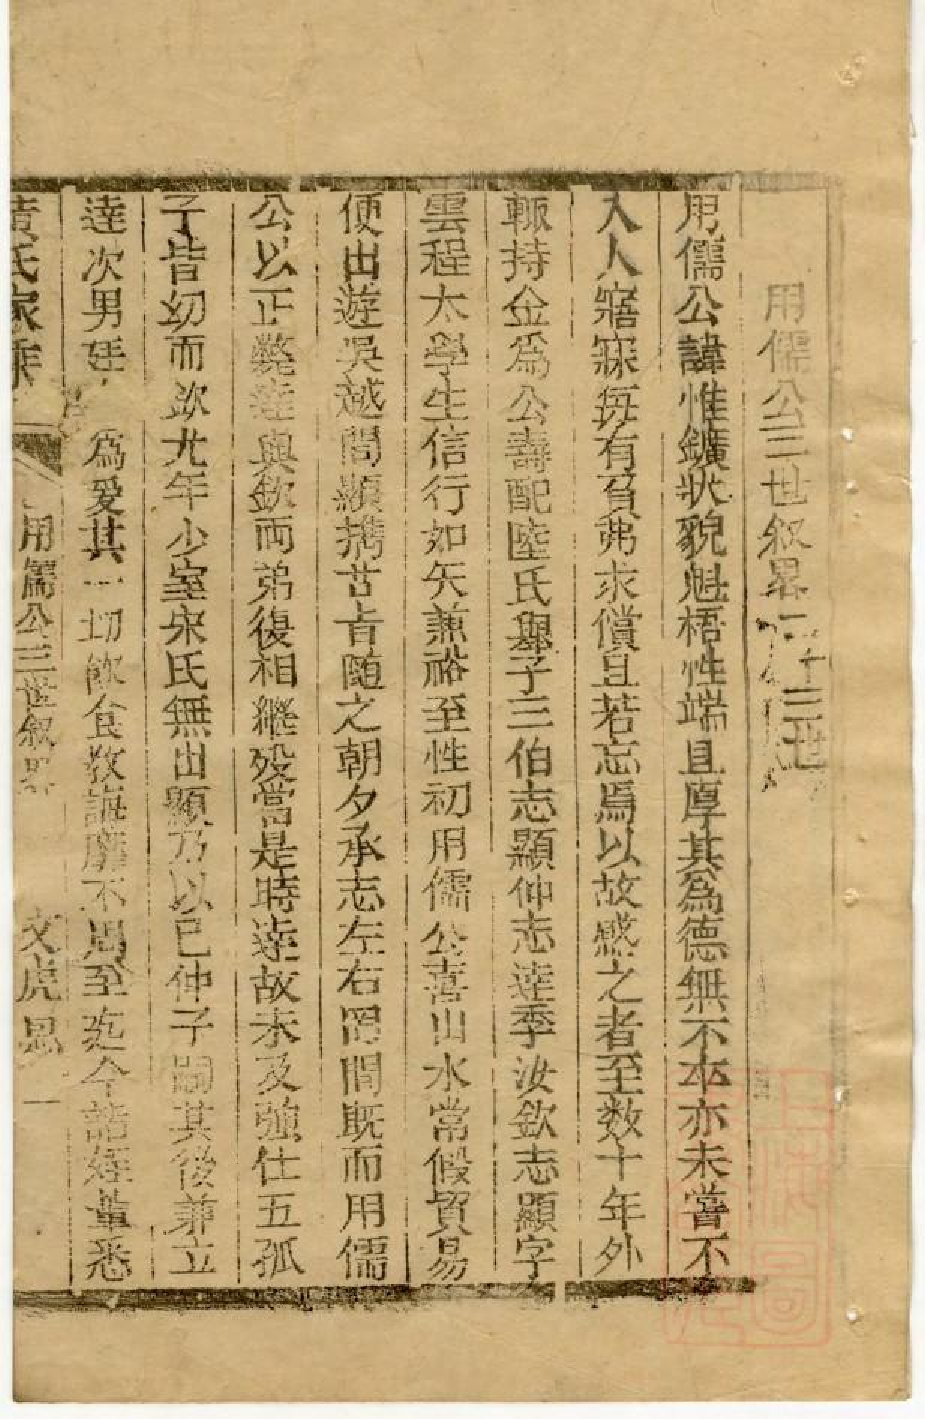 用儒公三世叙畧二十三世
用儒公諱惟鑛狀貌魁梧性端且厚其為德無不卒亦未嘗不
入人寤寐每有負弗求償且若忘焉以故感之者至数十年外
輙持金爲公壽配陸氏舉子三伯志顯仲志逹季汝欽志顯字
雲程太學生信行如矢兼裕至性初用儒公喜山水常假貿易
便出遊吳越間顯擕甘旨随之朝夕承志左右罔間既而用儒
公以正斃逹與欽両弟復相繼殁當是時逹故未及強仕五孤
子皆幼而欽尤年少室宋氏無出顯乃以已仲子嗣其後兼立
逹次男廷 爲爰其一切飲食教誨靡不周至迄今諸姪輩悉
黄氏家乘 用儒公三世叙畧 文虎 一